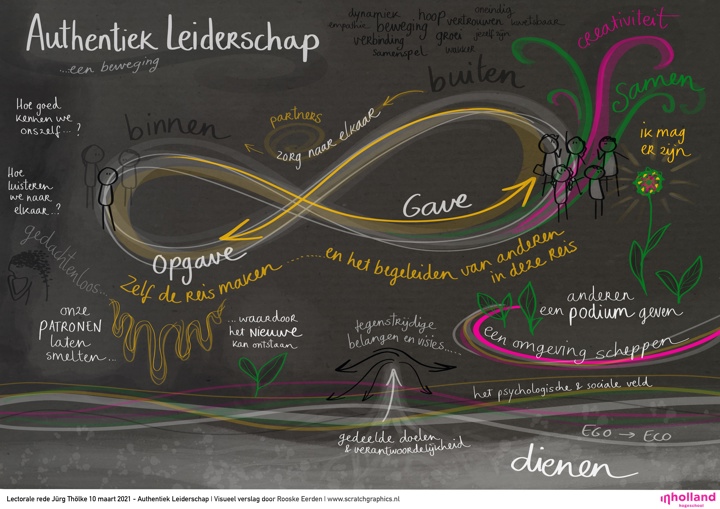 Authentiek Leiderschap
....een beweging
dynamiek
hoop
oneindig
empathie
beweging
vertrouwen
kwetsbaar
verbinding
groei
jezelf zijn
samenspel
wakker
creativiteit
samen
buiten
binnen
Hoe goed
kennen we
onszelf...?
partners
zorg naar elkaar
ik mag
er zijn
Hoe
luisteren
we naar
elkaar..?
Gave
Opgave
gedachtenloos...
Zelf de reis maken ......... en het begeleiden van anderen
in deze reis
onze
PATRONEN
laten
smelten...
...waardoor
het NIEUWE
kan ontstaan
tegenstrijdige
belangen en visies.....
anderen
een podium geven
een omgeving scheppen
het psychologische & sociale veld
gedeelde doelen
& verantwoordelijkheid
EGO → ECO
dienen
Lectorale rede Jürg Thölke 10 maart 2021 - Authentiek Leiderschap | Visueel verslag door Rooske Eerden | www.scratchgraphics.nl
inholland
hogeschool